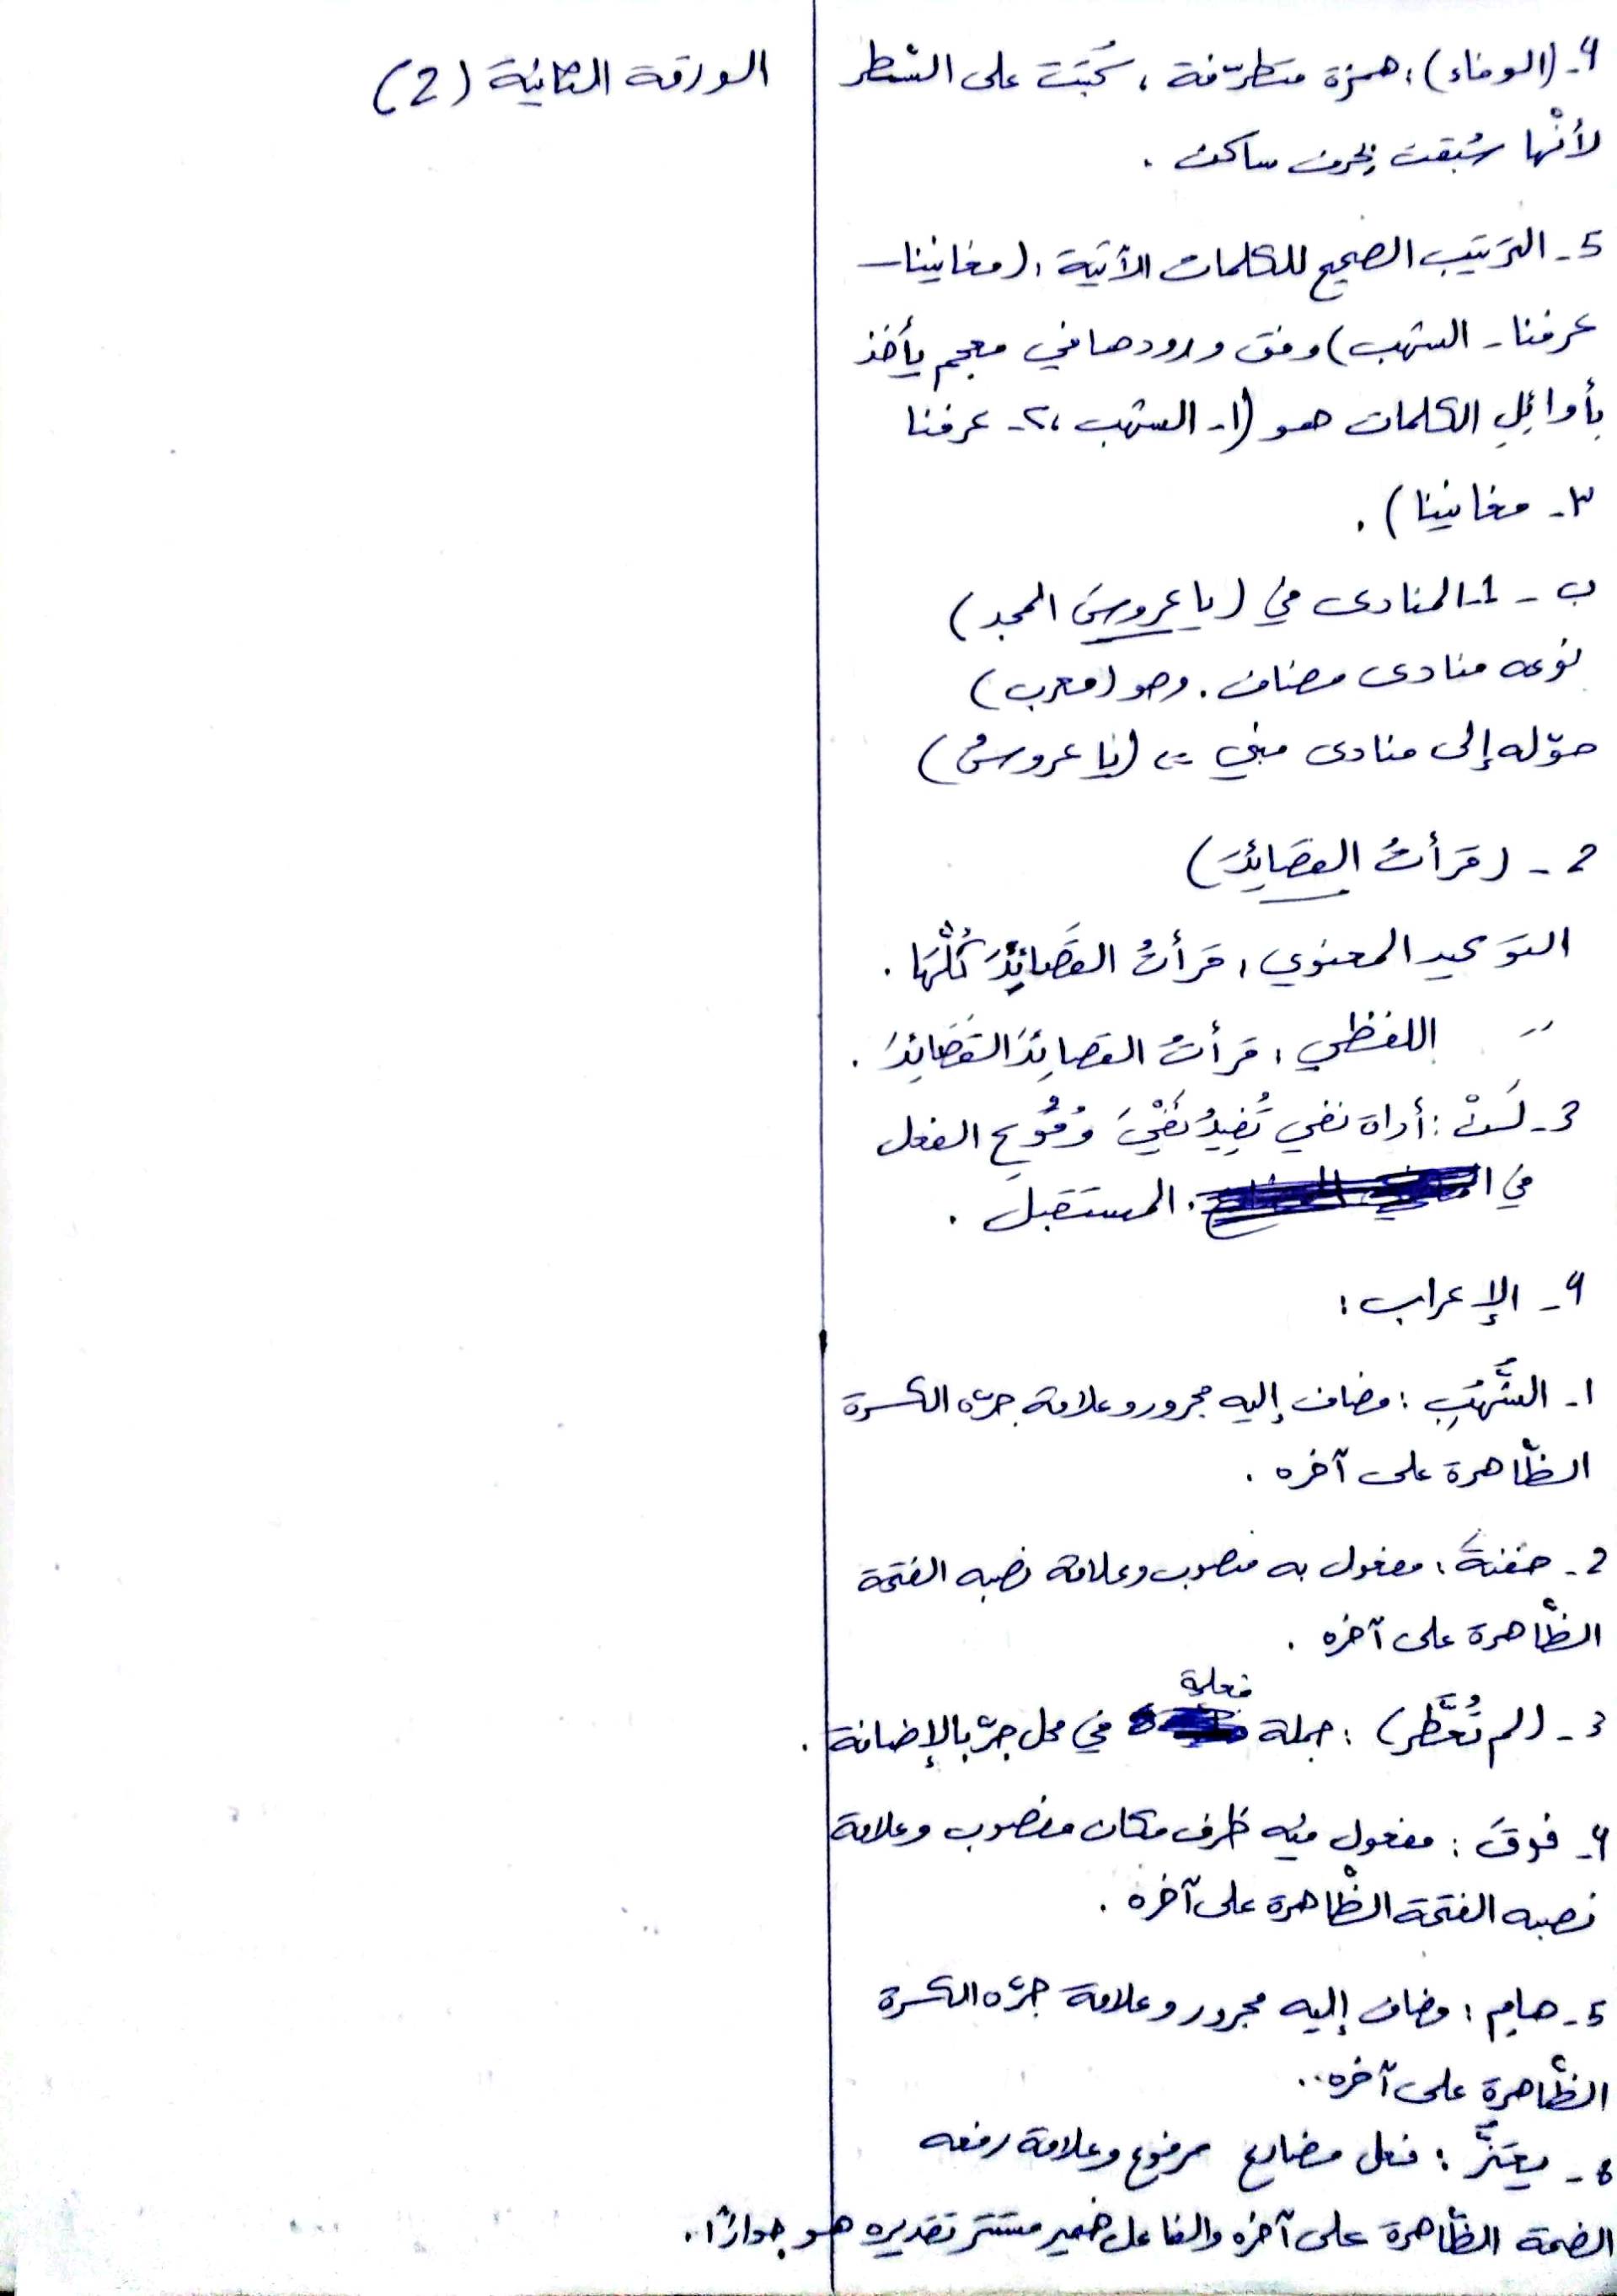 الورقة الثانية (2)
4- (الوفاء): همزة متطرّفة، كُتبَت على السّطر
لأنّها سُبقت بحرف ساكن.
5- الترتيب الصحيح للكلمات الآتية: (مغانينا -
عرفنا - الشهب) وفق ورودها في معجم يأخذ
بأوائِلِ الكلمات هو (١- الشهب، ٢- عرفنا
٣- مغانينا).
ب - 1- المنادى في (يا عروسَ المجد)
نوعه منادى مضاف. وهو (معرب)
حوّله إلى منادى مبني => (يا عروسُ)
2 - (قرأتُ القصَائِدَ)
التوَكيد المعنوي: قرأتُ القصَائِدَ كُلَّهَا.
〃 اللفظي: قرأتُ القصائِدَ القصَائِدَ.
3- لَسْتُ: أداة نفي تُفِيدُ نَفْيَ وُقُوعِ الفعل
في المستقبل.
4- الإعراب:
1- الشُّهُبِ: مضاف إليه مجرور وعلامة جرّه الكسرة
الظّاهرة على آخره.
2- حفنةً: مفعول به منصوب وعلامة نصبه الفتحة
الظّاهرة على آخره.
3- (لم تُعَطَّر): جملة فعلية في محل جرّ بالإضافة.
4- فوقَ: مفعول فيه ظرف مكان منصوب وعلامة
نصبه الفتحة الظّاهرة على آخره.
5- هامِ: مضاف إليه مجرور وعلامة جرّه الكسرة
الظّاهرة على آخره..
6- يعتزُّ: فعل مضارع مرفوع وعلامة رفعه
الضمة الظّاهرة على آخره والفاعل ضمير مستتر تقديره هو جوازًا.